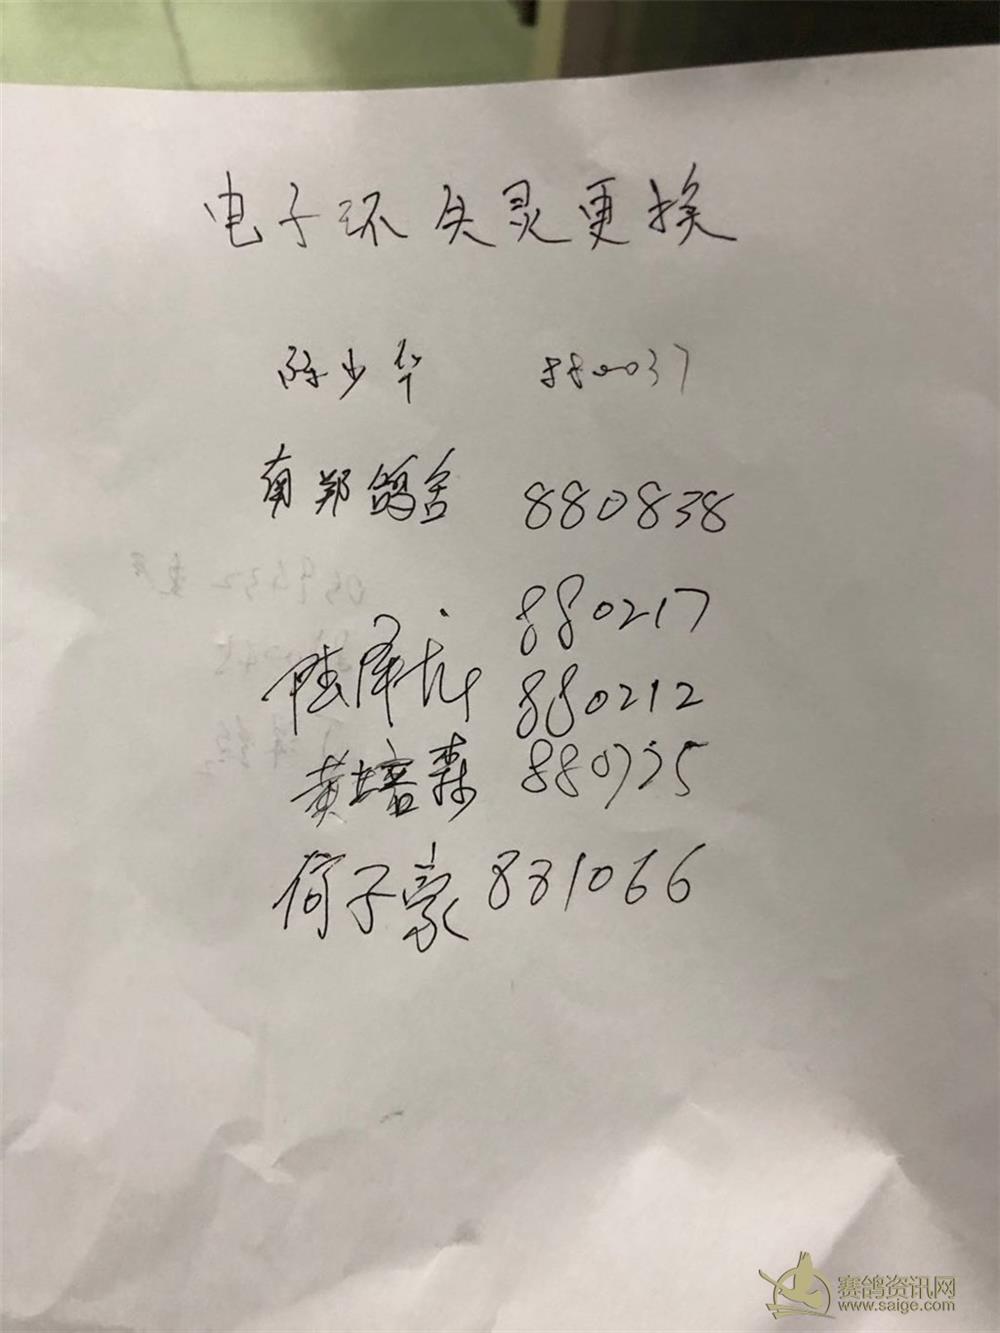 电子环失灵更换
陈少华 880037
南郑鸽舍 880838
880217
陆泽龙 880212
黄培森 880935
何子豪 881066
赛鸽资讯网
www.saige.com